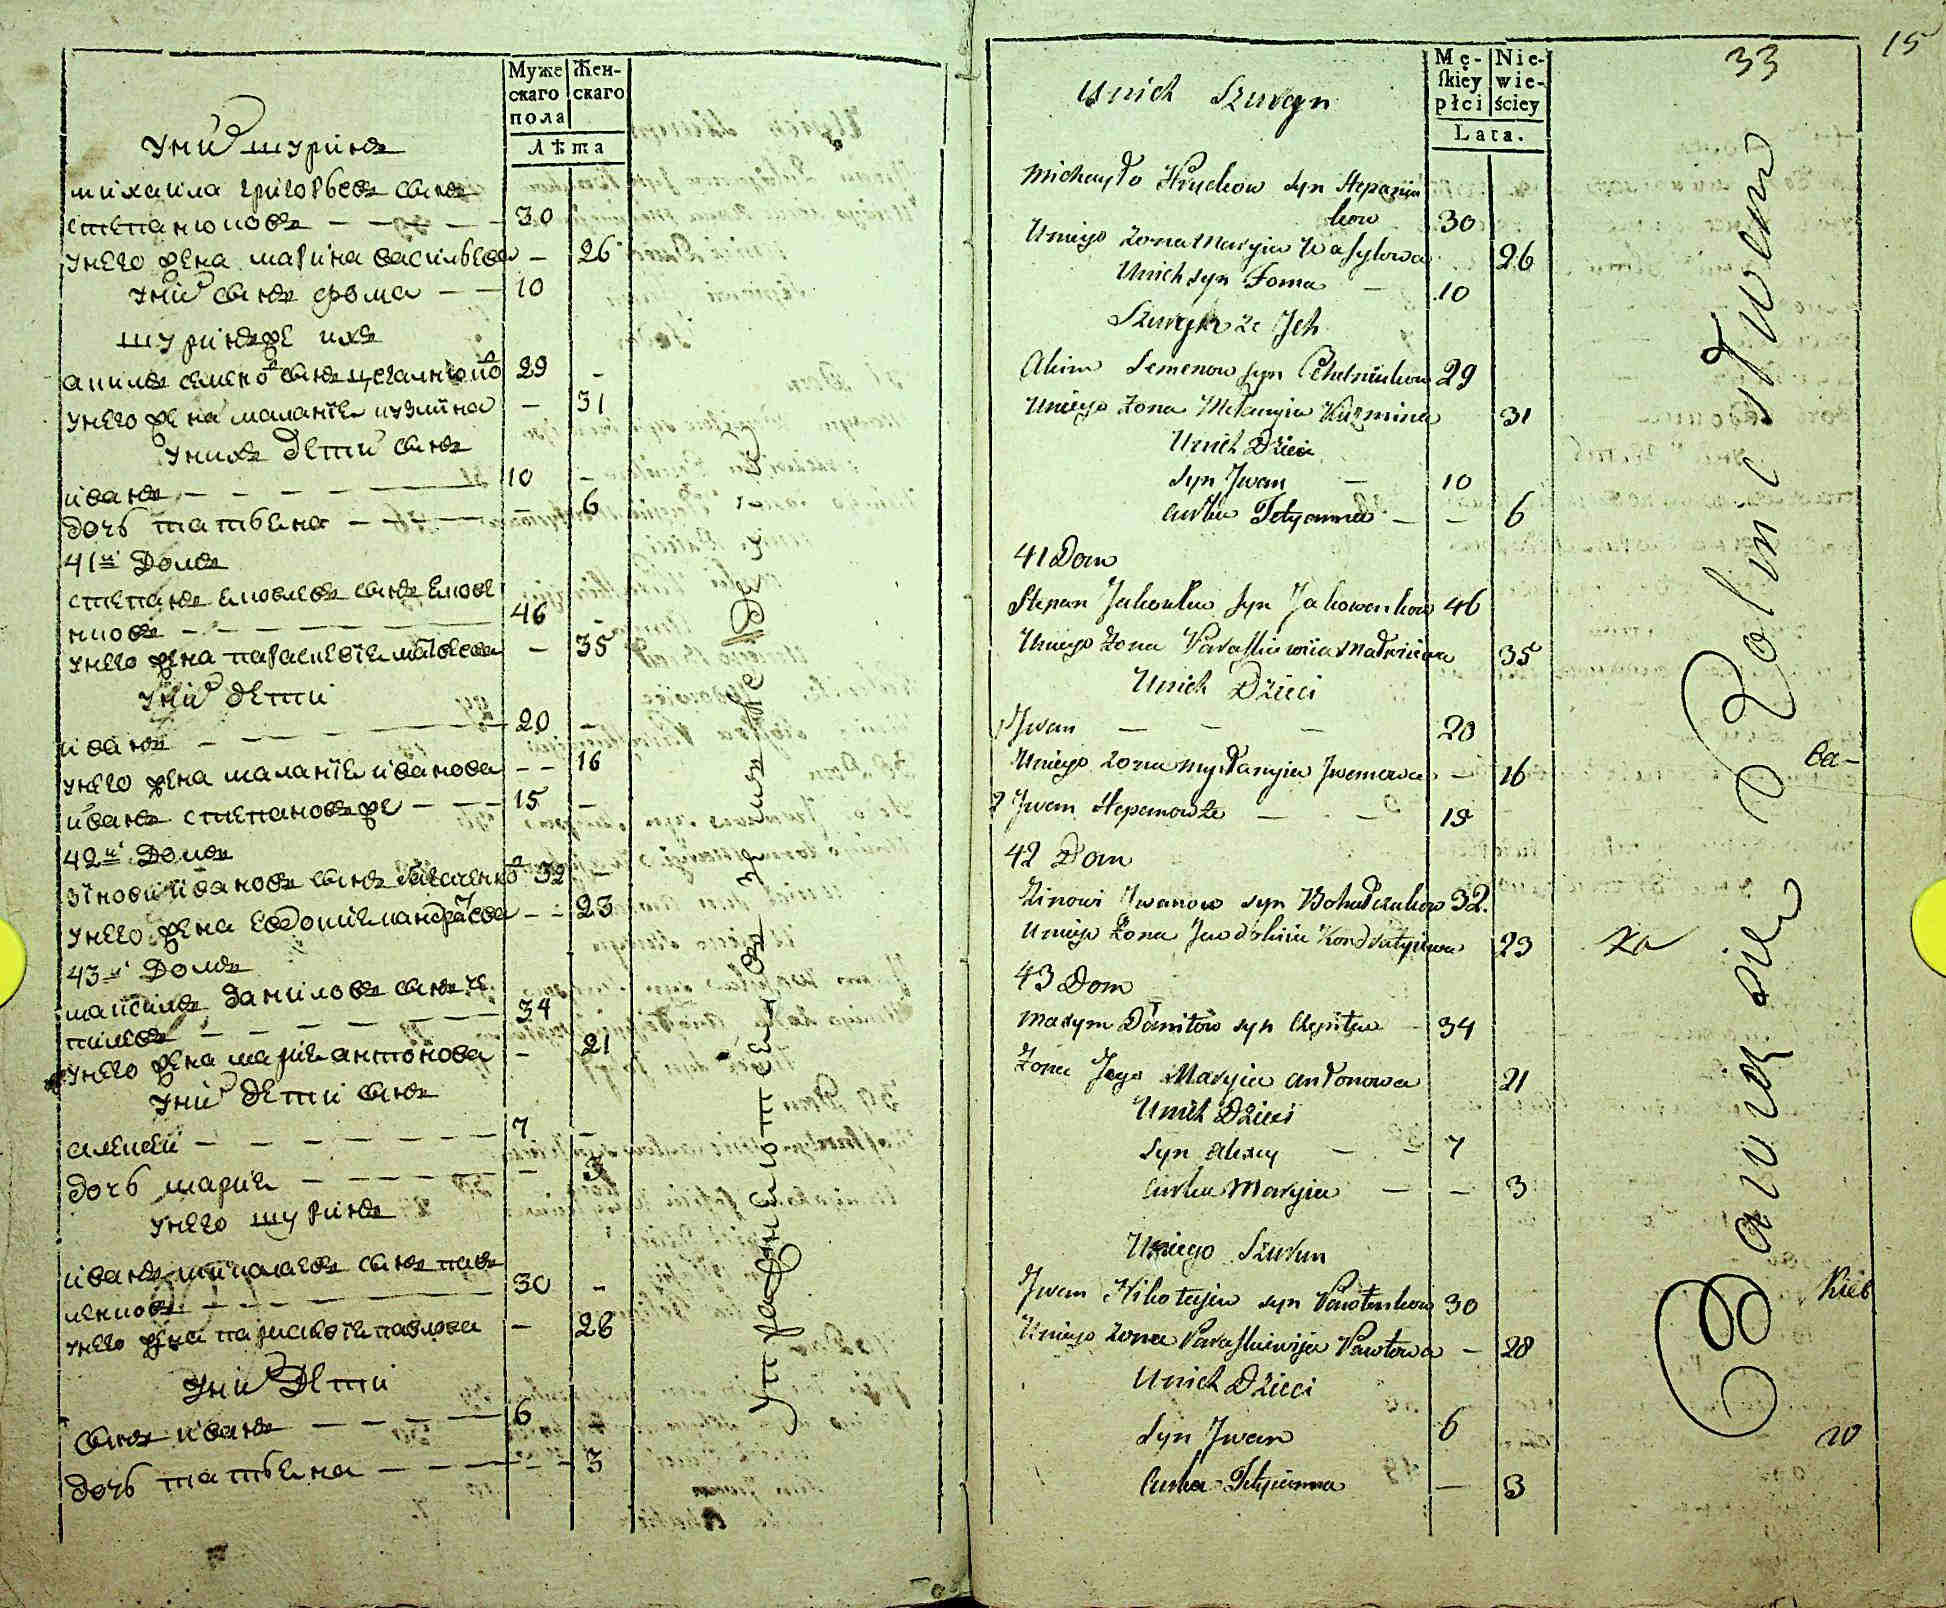 Муже
скаго
пола
Жен-
скаго
Лѣта
уних шуринъ
михаила григорьевъ синъ
степанюковъ — — — — 30
унего жена марина василъева — 26
уних синъ фома — — 10
шуринъже ихъ
акимъ семеновъ синъ 29 -
унего жена маланія кузмина — 31
унихъ дети синъ
иванъ — — — — — 10 -
дочь татъяна — — — — 6
41й домъ
степанъ яковлевъ синъ якове
нковъ — — — — — 46 -
унего жена параскевія матвеева — 35
уних дети
иванъ — — — — — 20 -
унего жена маланія иванова — — 16
иванъ степановъже — — — 15 -
42й домъ
зіновий ивановъ синъ 32 -
унего жена евдокия кандратева — - 23
43й домъ
максимъ даниловъ синъ че
пилевъ — — — — — 34
унего жена мария антонова — 21
уних дети синъ
алексей — — — — — — 7 -
дочь мария — — — — — 3
унего шуринъ
иванъ миколаевъ синъ павъ
ленковъ — — — — — 30 -
унего жена параскевія павлова — 28
уних дети
синъ иванъ — — — — 6 -
дочь татъяна — — — — - - 3
15
33
Mę-
skiey
płci
Nie-
wie-
ściey
Lata.
Unich Szuryn
Michayło Hryckow syn Stepaniu
kow 30
Uniego zona Maryia Wasylowa 26
Unich syn Foma — 10
Szuryn ze Jch
Akim Semenow syn 29
Uniego żona Mełanyia Kuzmina 31
Unich Dzieci
syn Jwan — 10
curka Tetyanna — — 6
41 Dom
Stepan Jakowlew syn Jakowenkow 46
Uniego żona Paraskiewiia Matwiiewa 35
Unich Dzieci
1 Jwan — — — 20
Uniego zona Mełanyia Jwanowa — 16
2 Jwan Stepanow że — — 15
42 Dom
Zinowi Jwanow syn 32.
Uniego żona Jewdokiia Kondratyiewa 23
43 Dom
Maxym Daniłow syn — 34
żona Jego Maryia Antonowa 21
Unich Dzieci
syn Alexey — — 7
curka Maryia — — 3
Uniego Szuryn
Jwan Nikołajew syn Pawłenkow 30
Uniego zona Paraskiewija Pawłowa — 28
Unich Dzieci
syn Jwan 6
Curka Tetyianna — 3
ва-
Киев